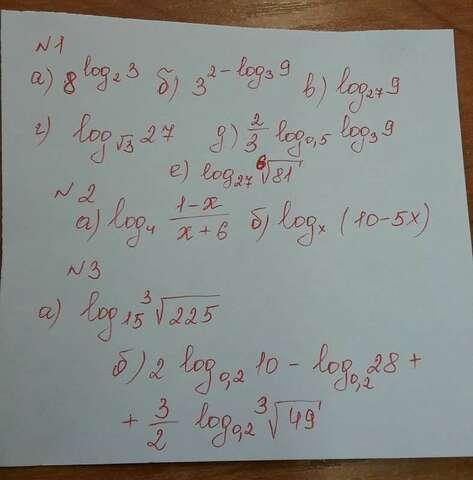 №1
а) 8^{log₂3} б) 3^{2-log₃9} в) log₂₇9
г) log_{√3}27 д) 2/3 log_{0,5} log₃9
е) log₂₇ ⁶√81
№2
а) log₄ (1-x)/(x+6) б) logₓ (10-5x)
№3
а) log₁₅ ³√225
б) 2 log_{0,2} 10 - log_{0,2} 28 +
+ 3/2 log_{0,2} ³√49